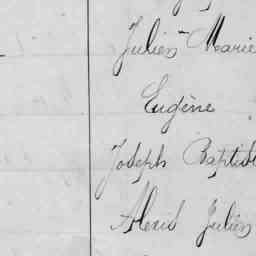 Julien Marie
Eugène
Joseph Baptist
Alexis Julien